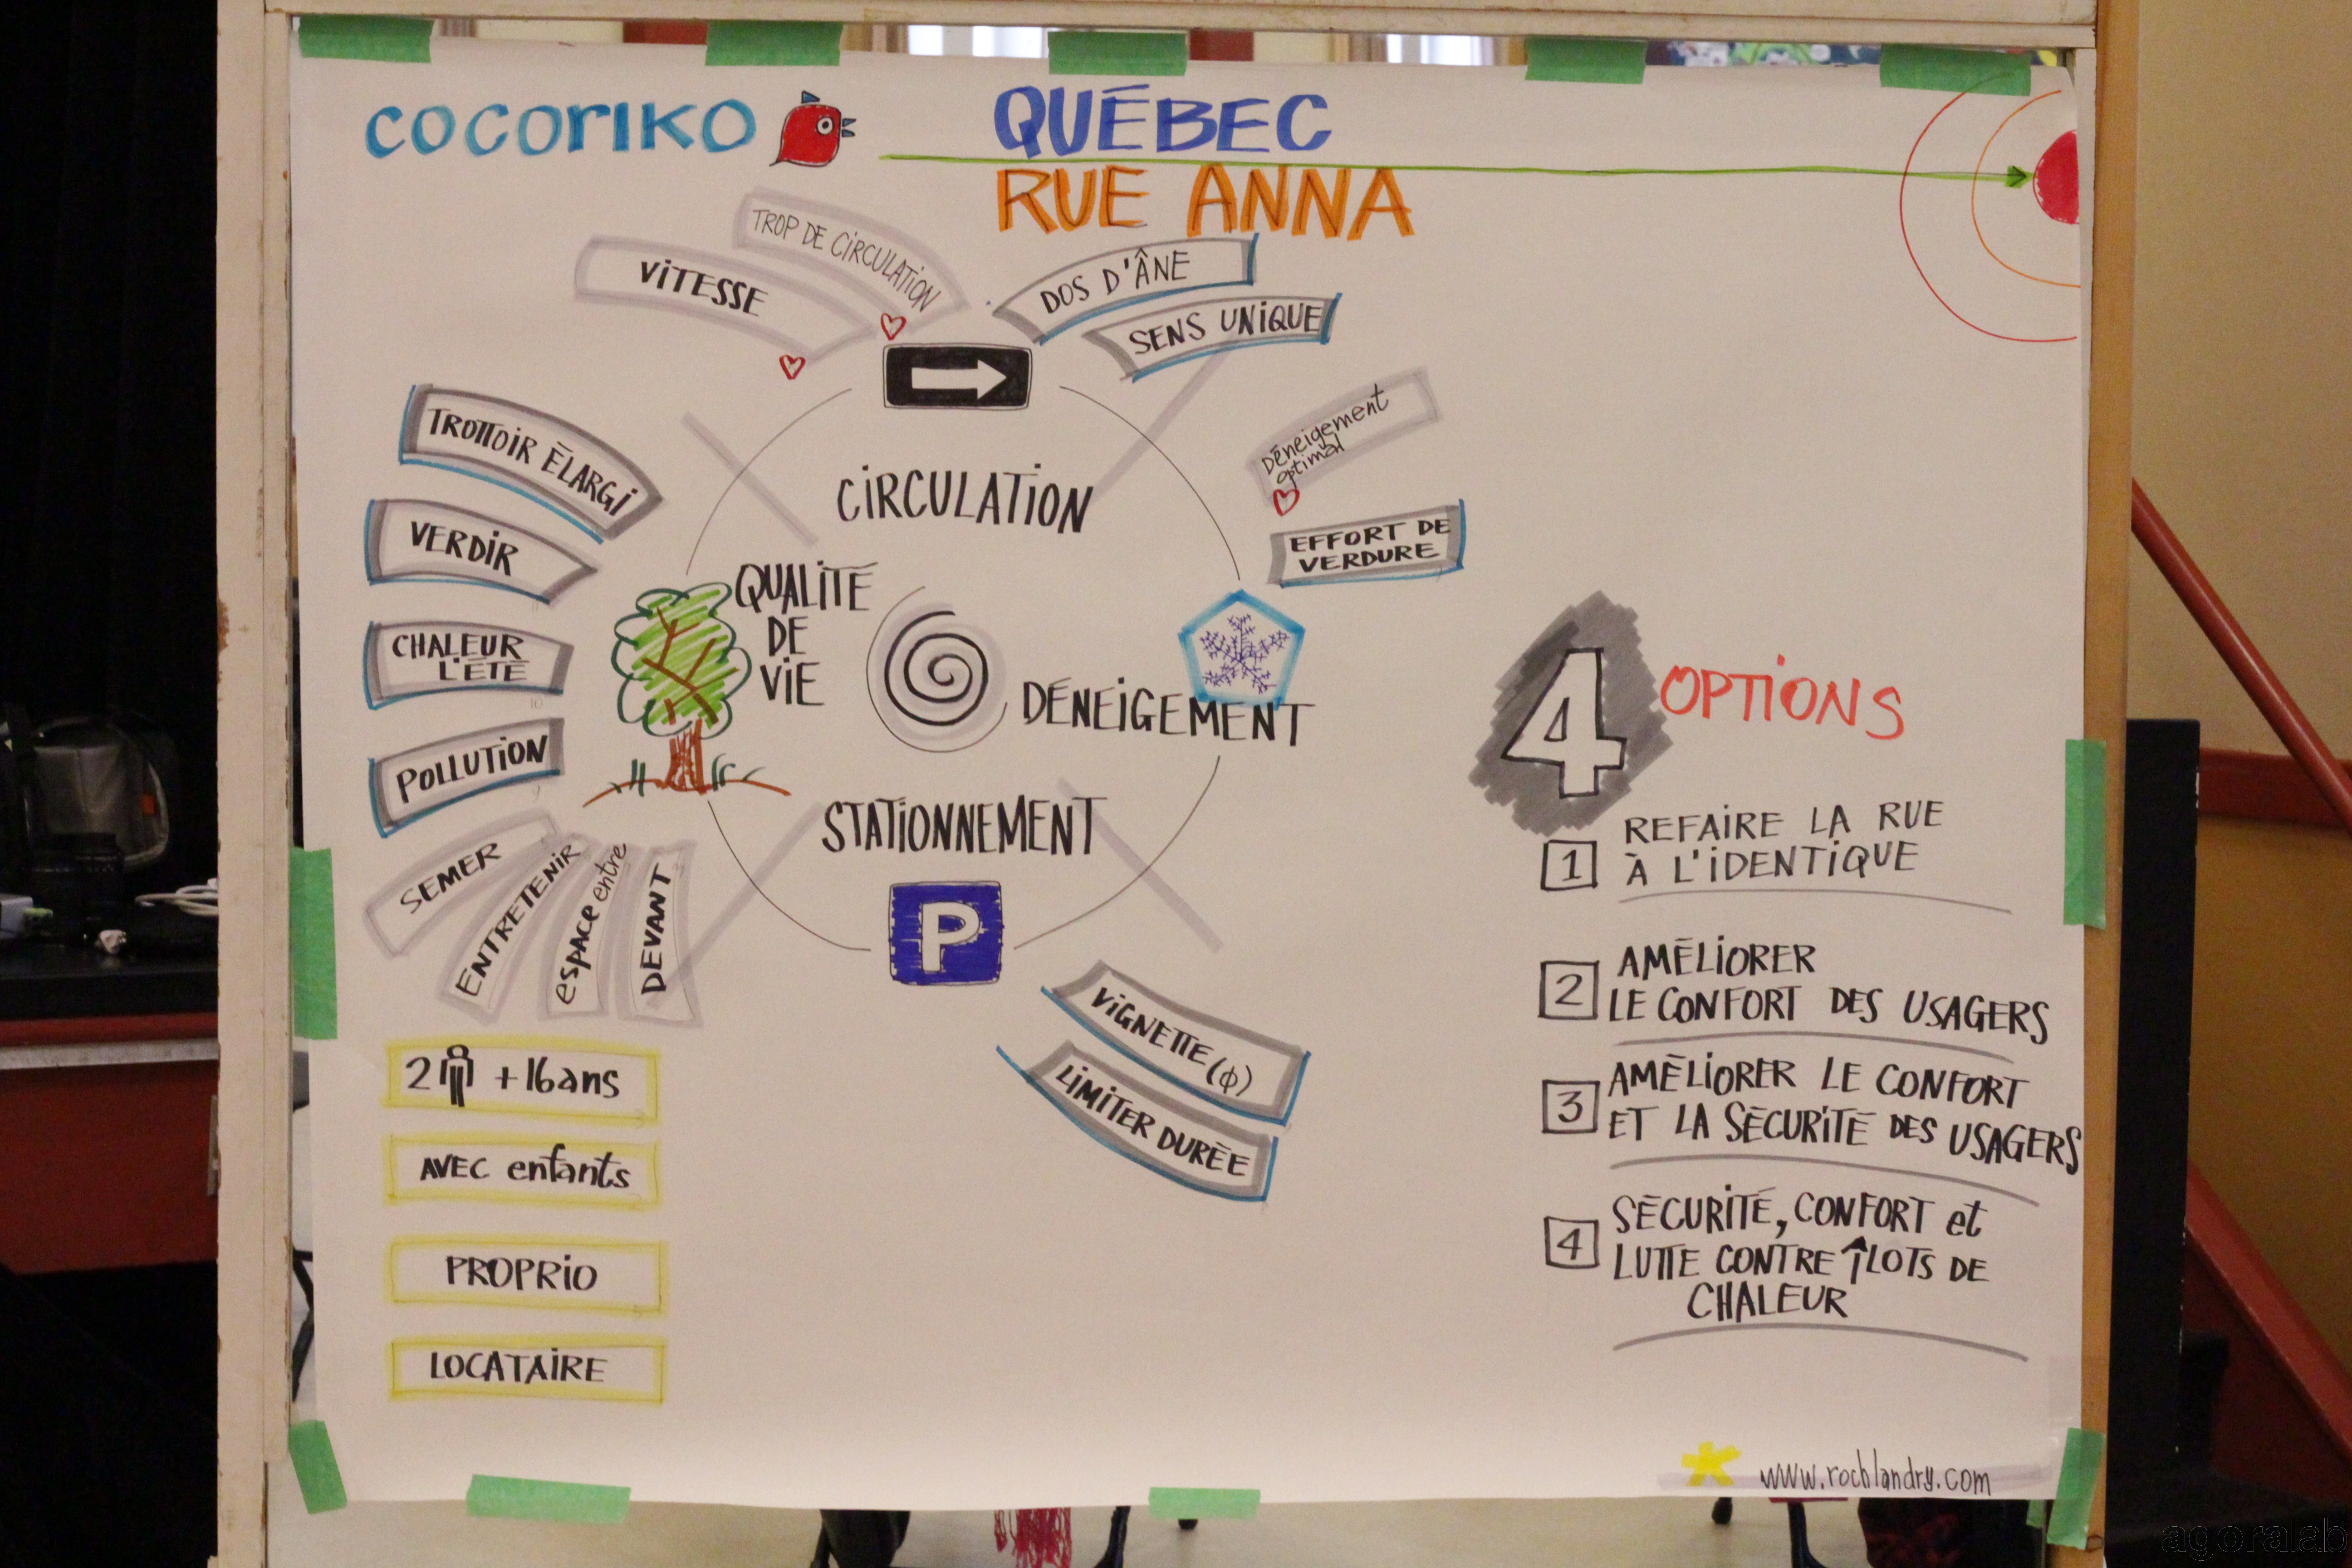 cocoriko
QUÉBEC
RUE ANNA
TROP DE CIRCULATION
VITESSE
DOS D'ÂNE
SENS UNIQUE
TROTTOIR ÉLARGI
VERDIR
CHALEUR
L'ÉTÉ
POLLUTION
SEMER
ENTRETENIR
espace entre
DEVANT
CIRCULATION
QUALITÉ
DE
VIE
Déneigement
optimal
EFFORT DE
VERDURE
DÉNEIGEMENT
STATIONNEMENT
P
VIGNETTE (φ)
LIMITER DURÉE
2 +16 ans
AVEC enfants
PROPRIO
LOCATAIRE
4 OPTIONS
1 REFAIRE LA RUE
À L'IDENTIQUE
2 AMÉLIORER
LE CONFORT DES USAGERS
3 AMÉLIORER LE CONFORT
ET LA SÉCURITÉ DES USAGERS
4 SÉCURITÉ, CONFORT et
LUTTE CONTRE ÎLOTS DE
CHALEUR
www.rochlandry.com
agoralab